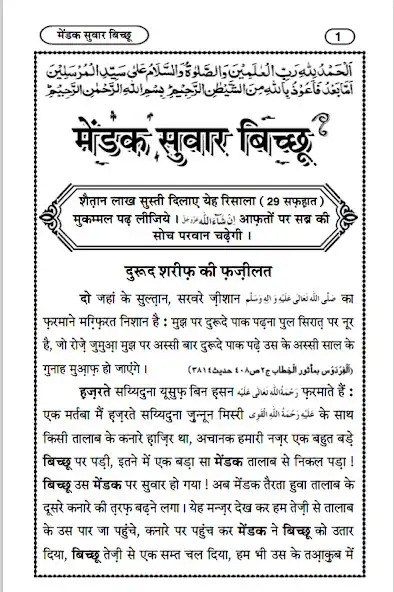 मेंडक सुवार बिच्छू
1
اَلْحَمْدُ لِلّٰهِ رَبِّ الْعٰلَمِيْنَ وَالصَّلٰوةُ وَالسَّلَامُ عَلٰى سَيِّدِ الْمُرْسَلِيْنَ
اَمَّا بَعْدُ فَاَعُوْذُ بِاللّٰهِ مِنَ الشَّيْطٰنِ الرَّجِيْمِ بِسْمِ اللّٰهِ الرَّحْمٰنِ الرَّحِيْمِ
मेंडक सुवार बिच्छू
शैतान लाख सुस्ती दिलाए येह रिसाला ( 29 सफ़हात )
मुकम्मल पढ़ लीजिये । اِنْ شَآءَ اللّٰه عَزَّوَجَلَّ आफ़तों पर सब्र की
सोच परवान चढ़ेगी ।
दुरूद शरीफ़ की फ़ज़ीलत
दो जहां के सुल्तान, सरवरे ज़ीशान صَلَّى اللّٰهُ تَعَالٰى عَلَيْهِ وَاٰلِهٖ وَسَلَّم का
फ़रमाने मग़्फ़िरत निशान है : मुझ पर दुरूदे पाक पढ़ना पुल सिरात़ पर नूर
है, जो रोज़े जुमुआ़ मुझ पर अस्सी बार दुरूदे पाक पढ़े उस के अस्सी साल के
गुनाह मुआ़फ़ हो जाएंगे । (اَلْفِرْدَوْس بمأثور الْخِطاب ج٢ص٤٠٨ حدیث٣٨١٤)
हज़रते सय्यिदुना यूसुफ़ बिन ह़सन رَحْمَةُ اللّٰهِ تَعَالٰى عَلَيْه फ़रमाते हैं :
एक मर्तबा मैं हज़रते सय्यिदुना जुन्नून मिस्री عَلَيْهِ رَحْمَةُ اللّٰهِ الْقَوِى के साथ
किसी तालाब के कनारे ह़ाज़िर था, अचानक हमारी नज़र एक बहुत बड़े
बिच्छू पर पड़ी, इतने में एक बड़ा सा मेंडक तालाब से निकल पड़ा !
बिच्छू उस मेंडक पर सुवार हो गया ! अब मेंडक तैरता हुवा तालाब के
दूसरे कनारे की त़रफ़ बढ़ने लगा । येह मन्ज़र देख कर हम तेज़ी से तालाब
के उस पार जा पहुंचे, कनारे पर पहुंच कर मेंडक ने बिच्छू को उतार
दिया, बिच्छू तेज़ी से एक सम्त चल दिया, हम भी उस के तआ़कुब में